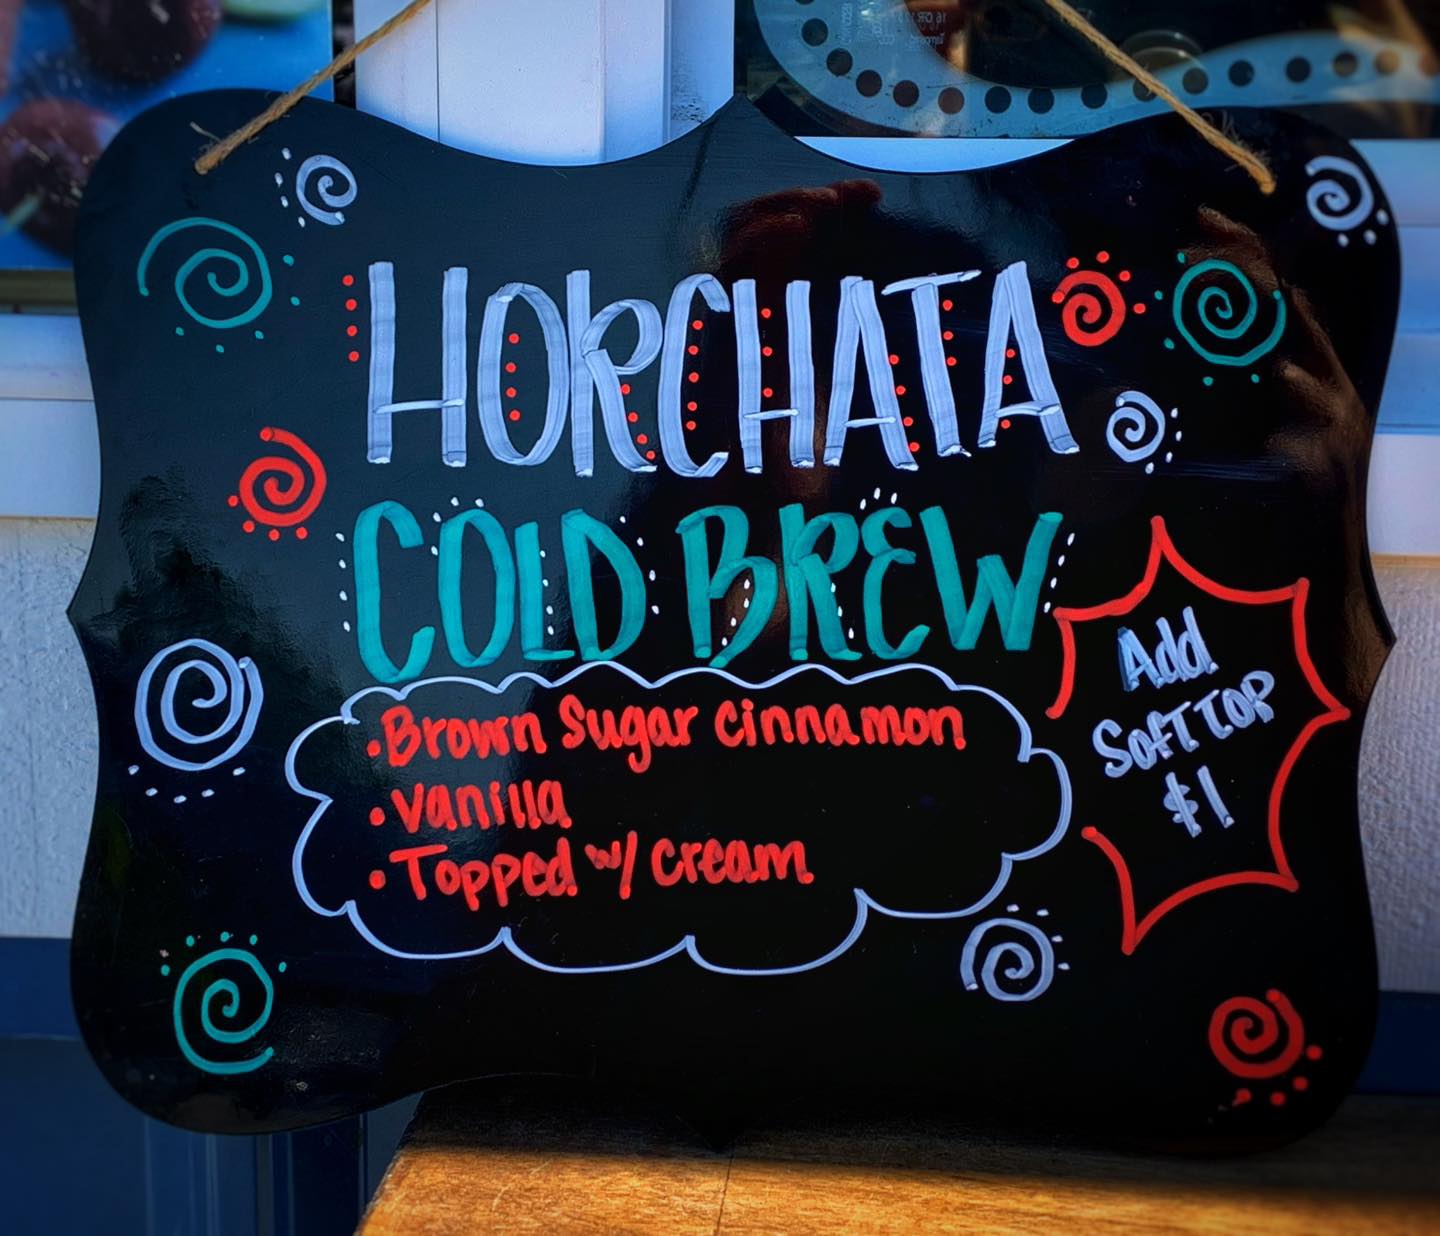 HORCHATA
COLD BREW
• Brown Sugar cinnamon
• vanilla
• Topped w/ cream
Add
Soft Top
$1